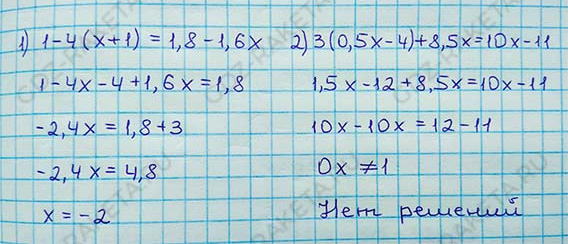 1) 1-4(x+1) = 1,8-1,6x
1-4x-4+1,6x=1,8
-2,4x = 1,8+3
-2,4x = 4,8
x = -2
2) 3(0,5x-4)+8,5x=10x-11
1,5x-12+8,5x=10x-11
10x-10x=12-11
0x ≠ 1
Нет решений